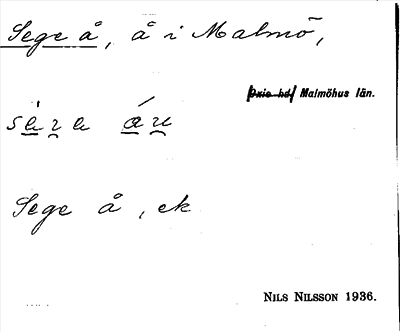 Sege å, å i Malmö,
Oxie hd/ Malmöhus län.
Sege å, ek
NILS NILSSON 1936.